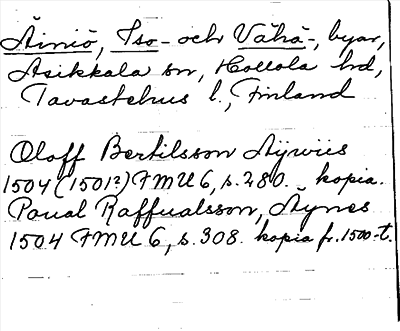 Äiniö, Iso- och Vähä-, byar,
Asikkala sn, Hollola hd,
Tavastehus l., Finland
Oloff Bertilsson Äijwiies
1504 (1501?) FMU 6, s. 280. kopia.
Paual Raffualsson, Äynes
1504 FMU 6, s. 308. kopia fr. 1500-t.